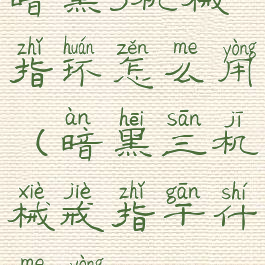 暗黑3机械
zhǐ huán zěn me yòng
指环怎么用
àn hēi sān jī
(暗黑三机
xiè jiè zhǐ gān shí
械戒指干什
me yòng